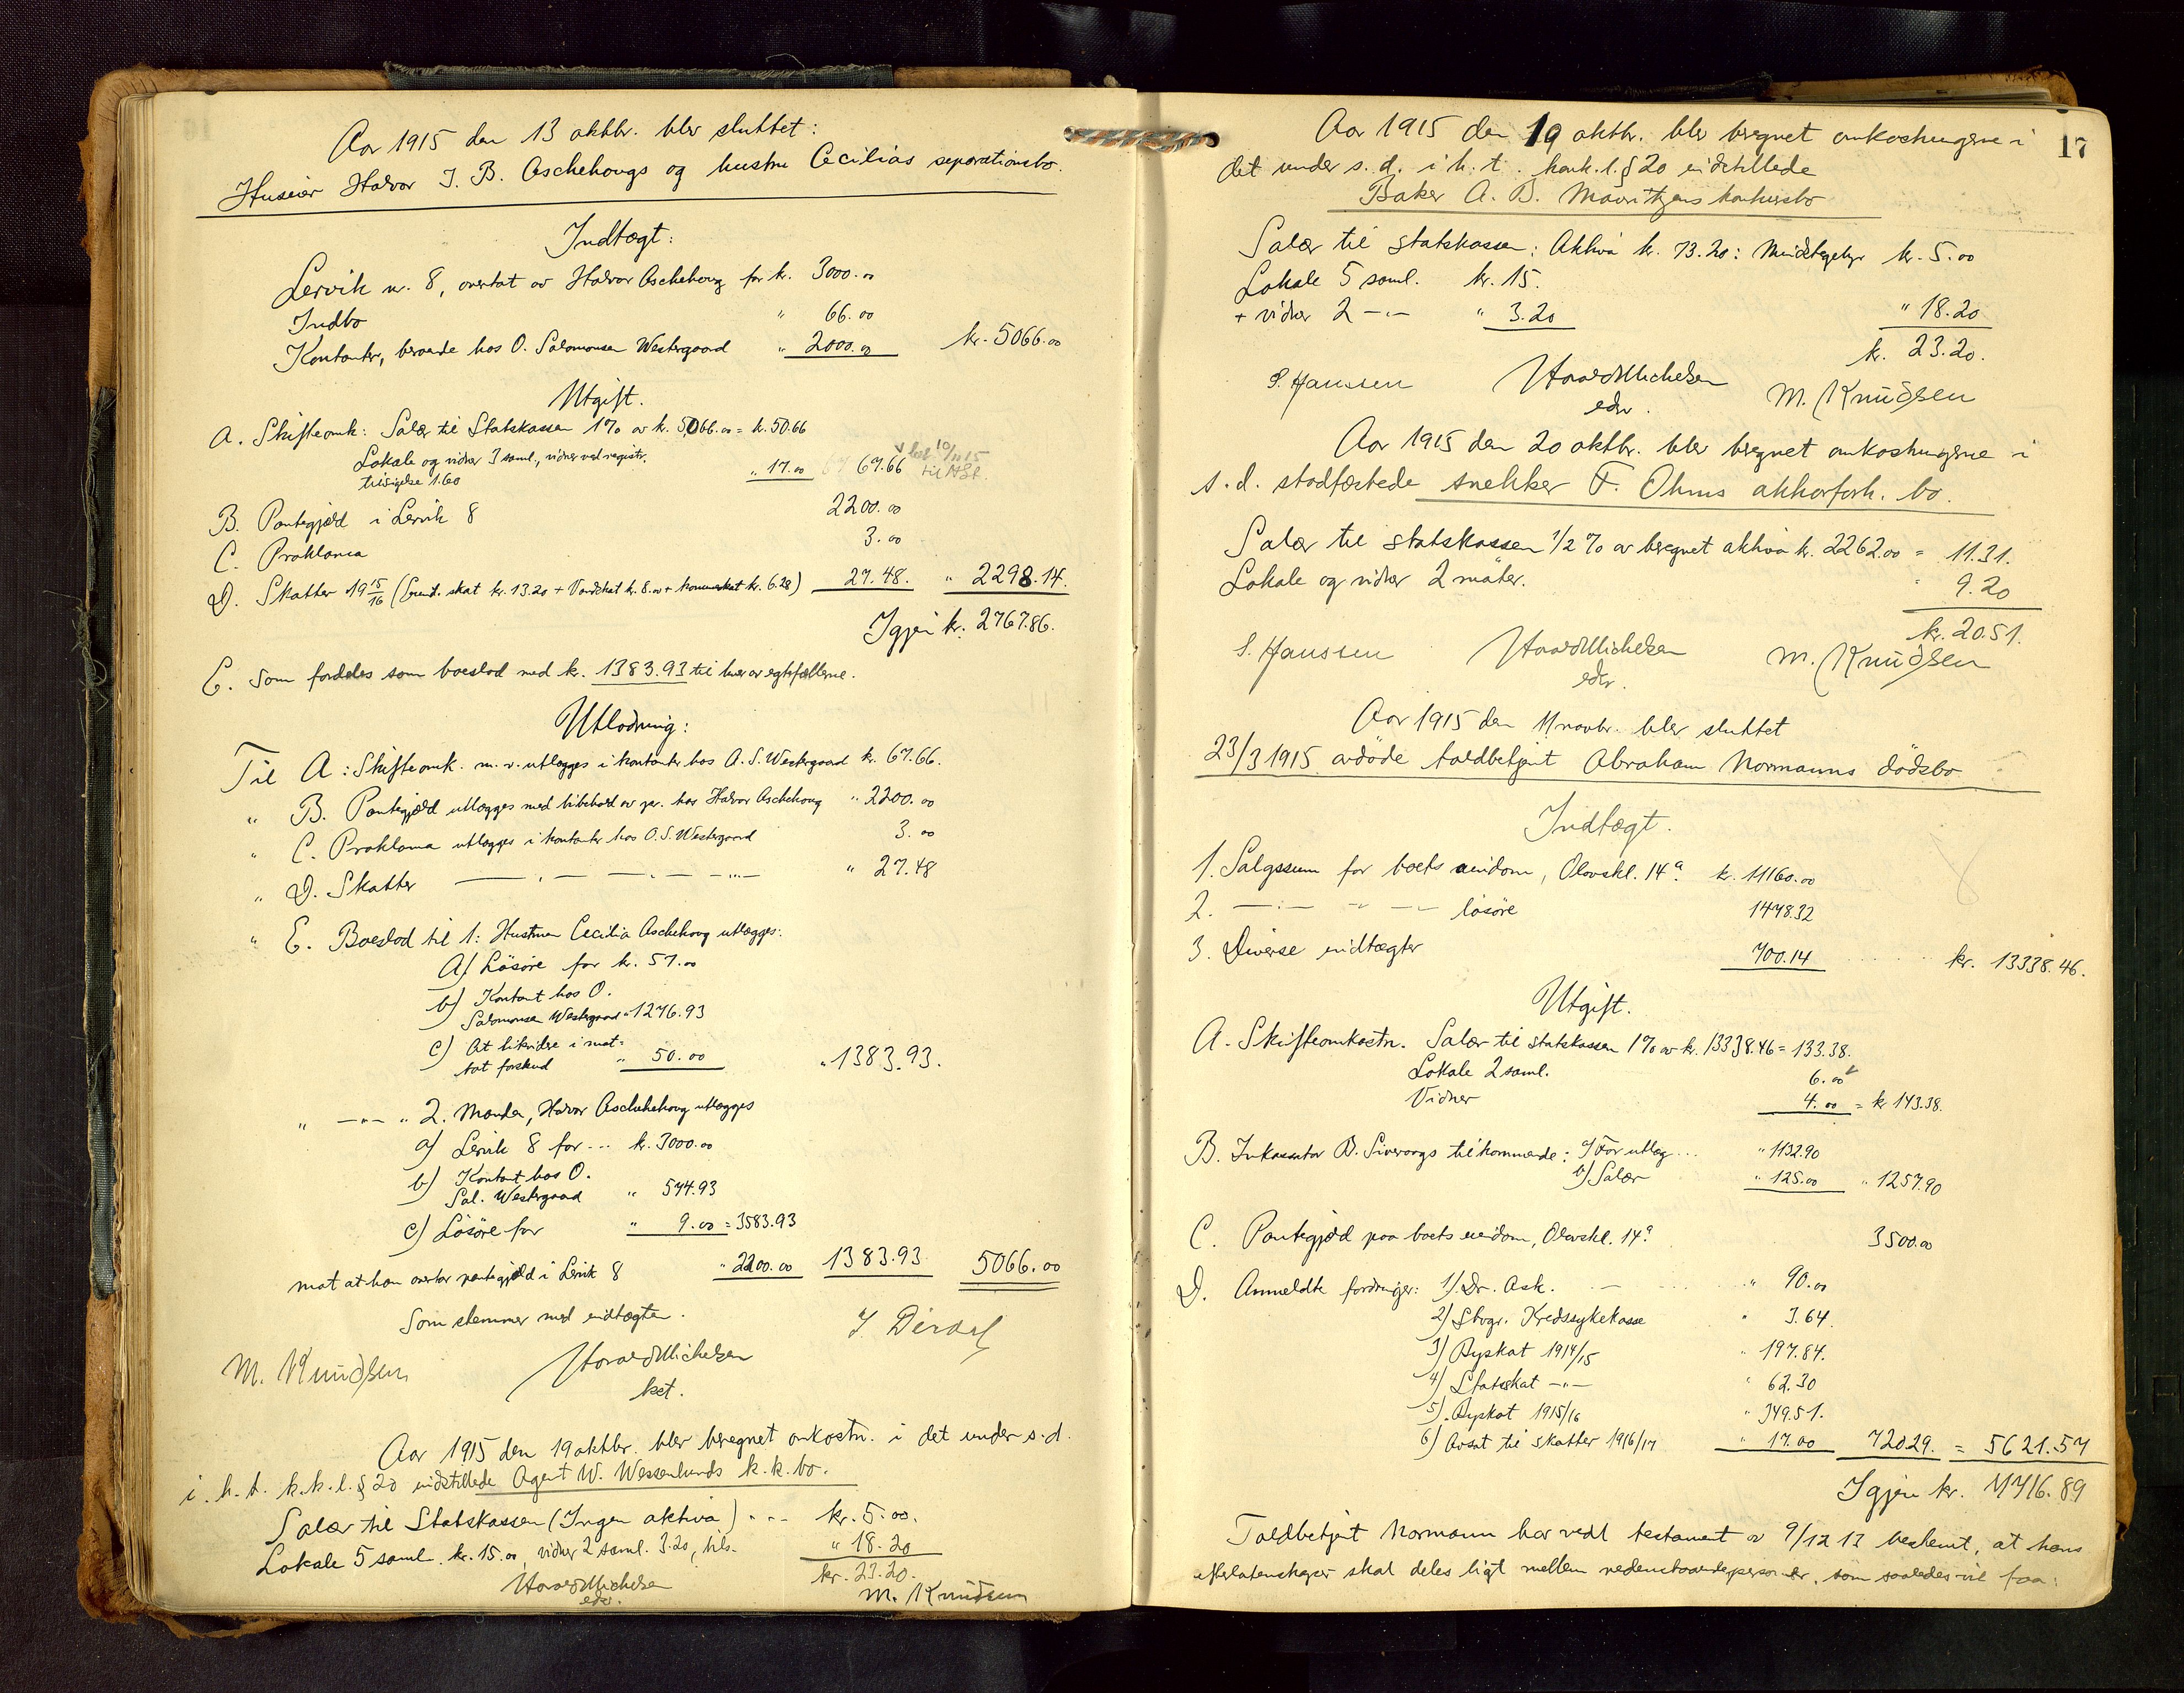 Aar 1915 den 13 oktbr. blev sluttet:
Huseier Halvor J. B. Aschehougs og hustru Cecilias separationsbo.
Indtægt:
Lervik nr. 8, overtat av Halvor Aschehoug for kr. 3000.00
Indbo " 66.00
Kontanter, beroende hos O. Salomonsen Westergaard " 2000.00 kr. 5066.00
Utgift.
A. Skifteomk: Salær til Statskassen 1% av kr. 5066.00 = kr. 50.66
Lokale og vidner 3 saml., vidner ved registr.
tilsigelse 1.60 " 17.00 67.66
B. Pantegjæld i Lervik 8 2200.00
C. Proklama 3.00
D. Skatter 19 15/16 (Grund. skat kr. 13.20 + Vandskat kr. 8.00 + kommuneskat kr. 6.28) 27.48. " 2298.14.
Igjen kr. 2767.86.
E. Som fordeles som boeslod med kr. 1383.93 til hver av egtefællerne.
Utlodning:
Til A: Skifteomk. m. v. utlægges i kontanter hos A. S. Westergaard kr. 67.66.
" B. Pantegjæld utlægges med bibehold av pr. hos Halvor Aschehoug " 2200.00
" C. Proklama utlægges i kontanter hos O. S. Westergaard 3.00
" D. Skatter — " — " — " — " 27.48
" E. Boeslod til 1: Hustruen Cecilia Aschehoug utlægges:
A) Løsøre for kr. 57.00
b) Kontant hos O.
Salomonsen Westergaard " 1276.93
c) At likvidere i mot-
tat forskud " 50.00 " 1383.93.
" —"— " 2. Manden, Halvor Aschehoug utlægges
a) Lervik 8 for ... kr. 3000.00
b) Kontant hos O.
Sal. Westergaard " 574.93
c) Løsøre for " 9.00 = 3583.93
mot at han overtar pantegjæld i Lervik 8 " 2200.00 1383.93 5066.00
Som stemmer med indtægten.
M. Knudsen Harald Michelsen
kst.
Aar 1915 den 19 oktbr. blev beregnet omkostn. i det under s. d.
i. h. t. k.k.l. § 20 indstillede Agent W. Wessenlunds k.k. bo.
Salær til Statskassen (Ingen aktiva) ... kr. 5.00.
Lokale 5 saml. kr. 15.00, vidner 2 saml. 3.20, tils. " 18.20
kr. 23.20.
Harald Michelsen M. Knudsen
edv.
17
Aar 1915 den 19 oktbr. blev beregnet omkostningerne i
det under s. d. i h. t. konk. l. § 20 indstillede
Baker A. B. Mauritzens konkursbo
Salær til statskassen: Aktiva kr. 73.20: Mindstegebyr kr. 5.00
Lokale 5 saml. kr. 15.
+ vidner 2 —"— " 3.20 " 18.20
kr. 23.20.
S. Hanssen Harald Michelsen M. Knudsen
edv.
Aar 1915 den 20 oktbr. blev beregnet omkostningerne i
s. d. stadfæstede snekker F. Ohms akkordforh. bo.
Salær til statskassen 1/2 % av beregnet aktiva kr. 2262.00 = 11.31.
Lokale og vidner 2 møter. " 9.20
kr. 20.51.
S. Hanssen Harald Michelsen M. Knudsen
edv.
Aar 1915 den 11 novbr. blev sluttet
23/3 1915 avdøde toldbetjent Abraham Normanns dødsbo
Indtægt.
1. Salgssum for boets eiendom, Olavskl. 14a. kr. 11160.00
2. —"— " — løsøre 1478.32
3. Diverse indtægter 700.14 kr. 13338.46.
Utgift.
A. Skifteomkostn. Salær til statskassen 1% av kr. 13338.46 = 133.38.
Lokale 2 saml. 6.00
Vidner 4.00 = kr 143.38.
B. Inkassator B. Siveraags tilkommende: a) For utlæg ... " 1132.90
b) Salær " 125.00 " 1257.90
C. Pantegjæld paa boets eiendom, Olavskl. 14a 3500.00
D. Anmeldte fordringer: 1) Dr. Ask. " 90.00
2) Stvgr. Kredssykekasse " 3.64.
3) Byskat 1914/15 " 197.84.
4) Statsskat —"— " 62.30
5) Byskat 1915/16 " 349.51.
6) Avsat til skatter 1916/17 " 17.00 720.29. = 5621.57
Igjen kr. 7716.89
Toldbetjent Normann har ved testament av 9/12 13 bestemt, at hans
efterlatenskaper skal deles ligt mellem nedenstaaende personer, som saaledes vil faa: